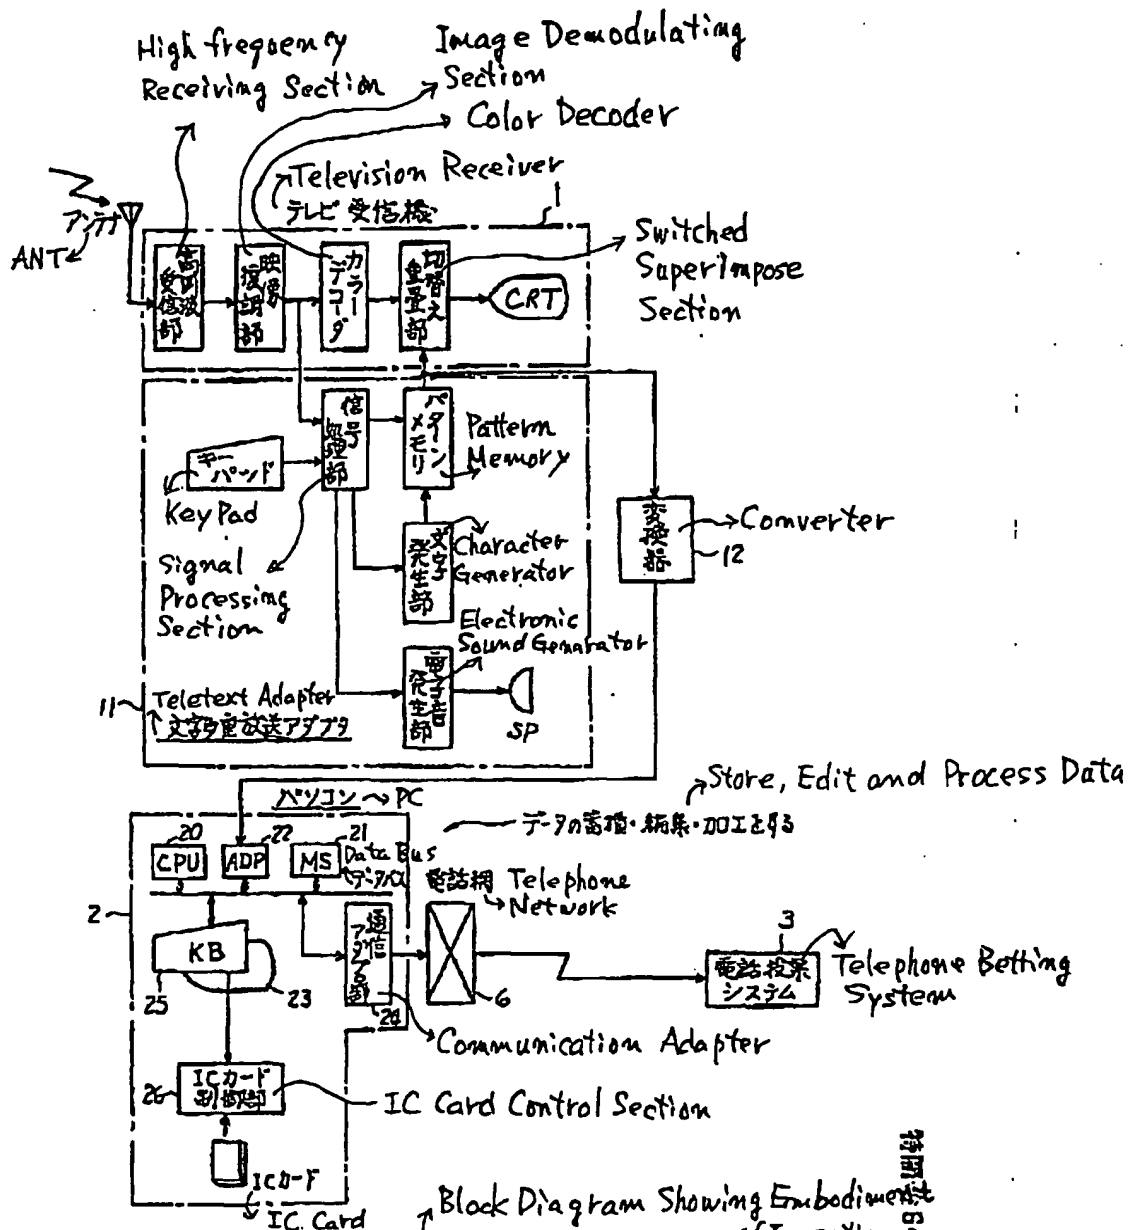 High frequency
Receiving Section
Image Demodulating
Section
Color Decoder
Television Receiver
テレビ受信機
1
アンテナ
ANT
Switched
Superimpose
Section
高周波
受信部
映像
復調部
カラー
デコーダ
切替え
重畳部
CRT
信号
処理部
パターン
メモリ
Pattern
Memory
キー
パッド
Key Pad
Signal
Processing
Section
文字
発生部
Character
Generator
変換器
Converter
12
Electronic
Sound Genarator
電子音
発生部
SP
11
Teletext Adapter
文字多重放送アダプタ
パソコン
PC
Store, Edit and Process Data
データの蓄積・編集・加工をする
20
22
21
CPU
ADP
MS
Data Bus
データバス
電話網
Telephone
Network
2
KB
25
23
通信
アダプタ部
24
6
3
電話投票
システム
Telephone Betting
System
Communication Adapter
ICカード
制御部
26
IC Card Control Section
ICカード
IC Card
Block Diagram Showing Embodiment